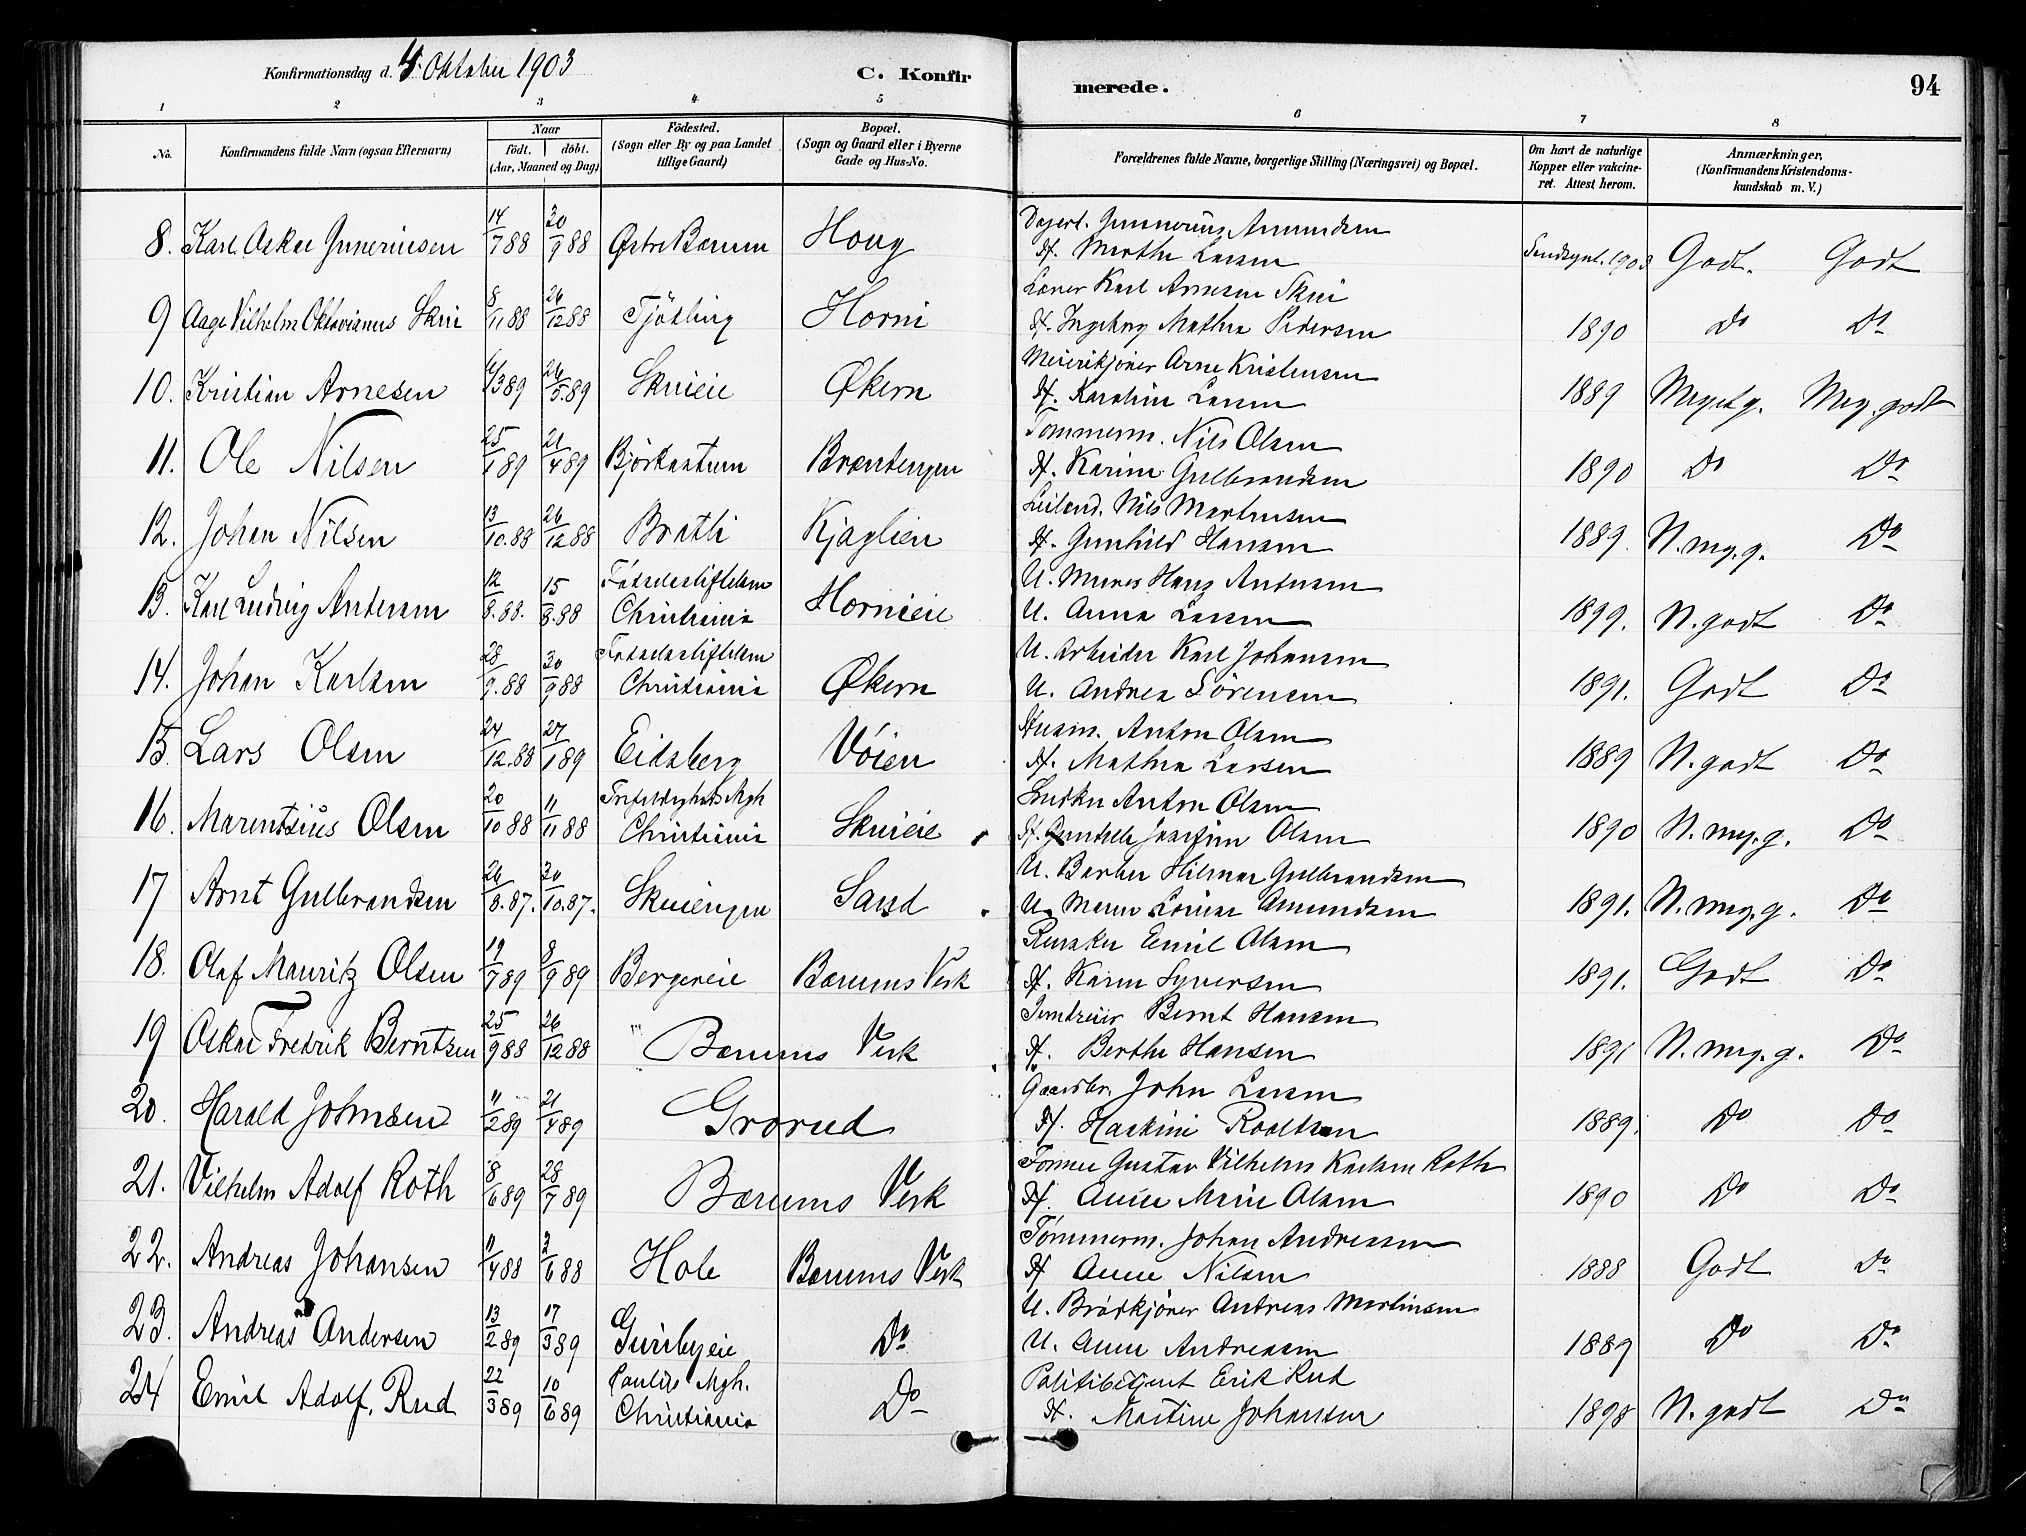 Konfirmationsdag d. 4 Oktober 1903
C. Konfir
merede.
94
1 2 3 4 5 6 7 8
No.
Konfirmandens fulde Navn (ogsaa Efternavn)
Naar
födt. döbt.
(Aar, Maaned og Dag)
Födested.
(Sogn eller By og paa Landet
tillige Gaard)
Bopæl.
(Sogn og Gaard eller i Byerne
Gade og Hus-No.
Forældrenes fulde Navne, borgerlige Stilling (Næringsvei) og Bopæl.
Om havt de naturlige
Kopper eller vakcine-
ret. Attest herom.
Anmærkninger.
(Konfirmandens Kristendoms-
kundskab m. V.)
Gunnerius Amundsen
8. Karl Oskar Gunneriusen 14/7 88 30/9 88 Østre Bærum Haug H. Marthe Larsen 1903 Godt. Godt
Karl Arnesen Skui
9 Aage Vilhelm Oktavianus Skui 8/11 88 26/12 88 Tjösling Horni H. Ingeborg Mathea Pedersen 1890 Do Do
Meierikjører Arne Kristensen
10. Kristian Arnesen 3 89 26/5. 89 Skuieie Økern H. Karoline Larsen 1889 Meget g. Meg. godt
Tømmerm. Nils Olsen
11. Ole Nilsen 25/1 89 21/4 89 Brøntengen H. Karine Gulbrandsen 1890 Do Do
Leilend. Nils Martinsen
12. Johan Nilsen 13/10. 88 26/12 88 Bratli Kjaglien H. Gunhild Hansen 1889. N. meg. g. Do
Fødselsstiftelsen U. Murer Hans Antonsen
13. Karl Ludvig Antonsen 12/8. 88. 15/8. 88 Christiania Hornieie U. Anna Larsen 1899. N. godt Do
Fødselsstiftelsen U. Arbeider Karl Johansen
14. Johan Karlsen 28/9. 88 30/9 88 Christiania Økern U. Andrea Sørensen 1891. Godt Do
Husm. Anton Olsen
15. Lars Olsen 24/12. 88 27/1 89 Eidsberg Vøien H. Mathea Larsen 1889 N. godt Do
Trefoldigheds Mgh Snedker Anton Olsen
16. Marentsius Olsen 20/10 88 11/11 88 Christiania Skuieie H. Josefine Olsen 1890 N. meg. g. Do
U. Barber Hilmar Gulbrandsen
17 Arnt Gulbrandsen 26/8. 87. 30/10. 87. Skuiengen Sand U. Maren Lovise Amundsen 1891. N. meg. g. Do
Emil Olsen
18. Olaf Mauritz Olsen 19/7 89 8/9 89 Bergereie Bærums Verk H. Karen Syversen 1891. Godt Do
Bernt Hansen
19 Oskar Fredrik Berntsen 25/9 88 26/12 88 Bærums Verk H. Berthe Hansen 1891 N. meg. g. Do
Gaardbr. John Larsen
20. Harald Johnsen 11/2 89 21/4 89 Grorud H. 1889. Do Do
Former Gustav Vilhelm Karlsen Roth
21. Vilhelm Adolf Roth 8/6 89 28/7 89 Bærums Verk H. Anne Marie Olsen 1890 Do Do
Tømmerm. Johan Andreassen
22. Andreas Johansen 11/4 88 3/6 88 Hole Bærums Verk H Anne Nilsen 1888 Godt Do
U. Brødkjører Andreas Martinsen
23. Andreas Andersen 13/2 89 17/3 89 Guribyeie Do U. Anne Andreassen 1889 Do Do
Paulus Mgh. Politibetjent Erik Rud
24 Emil Adolf. Rud 22/3 89 10/6 89 Christiania Do H. Martine Johansen 1898 N. godt Do